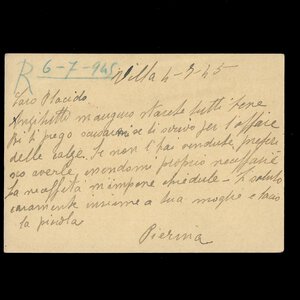 R 6-7-945 Villa 4-7-45
Caro Placido
Anzitutto m'auguro stacete tutti bene
Poi ti prego scusarmi se ti scrivo per l'affare
delle calze. Se non l'hai vendute preferi
no averle, mandami proprio necessarie
La necessità m'impone chiederle - ti saluto
caramente insieme a tua moglie e bacio
la piccola
Pierina